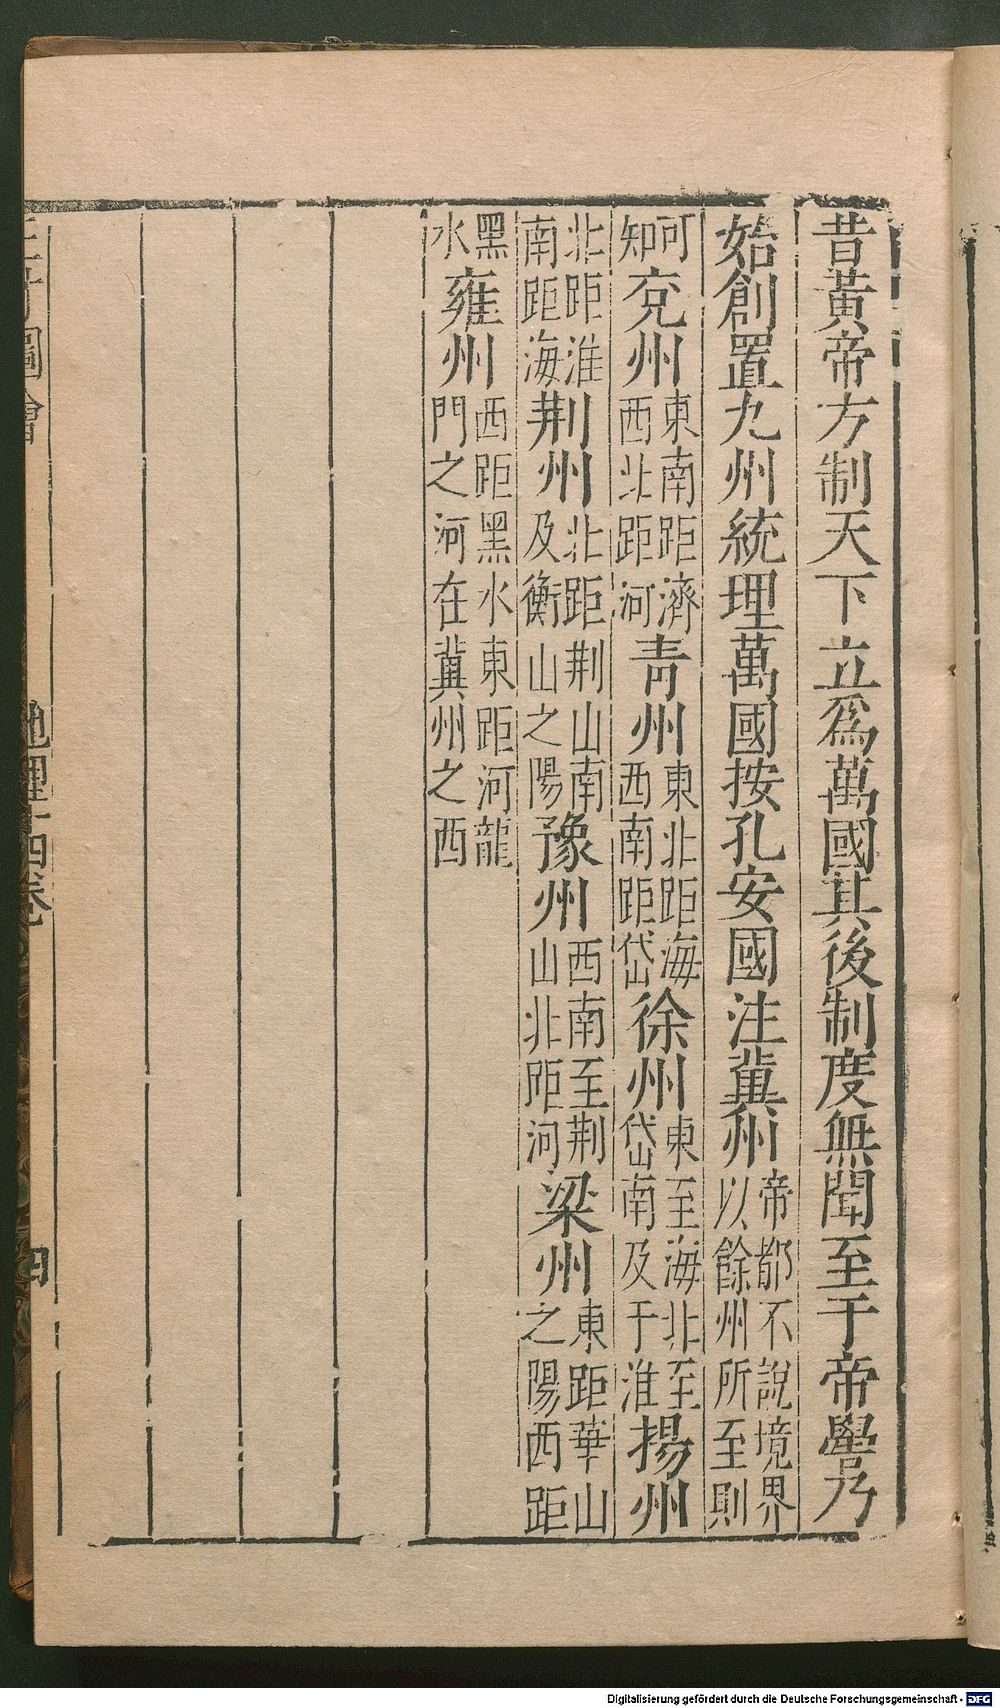 昔黃帝方制天下立為萬國其後制度無聞至于帝嚳乃
始創置九州統理萬國按孔安國注冀州帝都不說境界以餘州所至則
可知兗州東南距濟西北距河青州東北距海西南距岱徐州東至海北至岱南及于淮揚州
北距淮南距海荆州北距荆山南及衡山之陽豫州西南至荆山北距河梁州東距華山之陽西距
黑水雍州西距黑水東距河龍門之河在冀州之西
三才圖會
地理十四卷
四
Digitalisierung gefördert durch die Deutsche Forschungsgemeinschaft - DFG